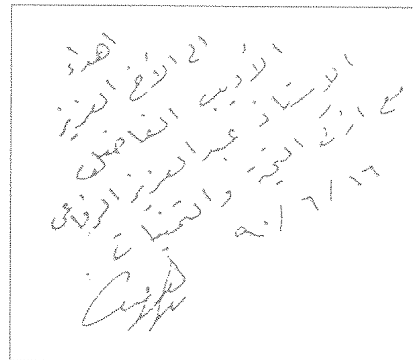 اهداء
الى الأخ العزيز
الأديب الفاضل
الاستاذ عبد العزيز الرفاعي
مع ازكى التحية والتمنيات
٩٠/٦/١٦